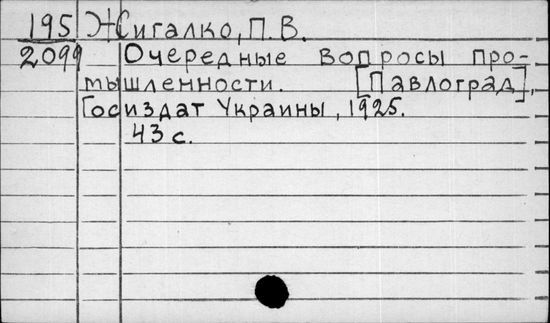 195 Жигалко, П. В.
2099 Очередные вопросы про-
мышленности. [Павлоград],
Госиздат Украины, 1925.
43 с.